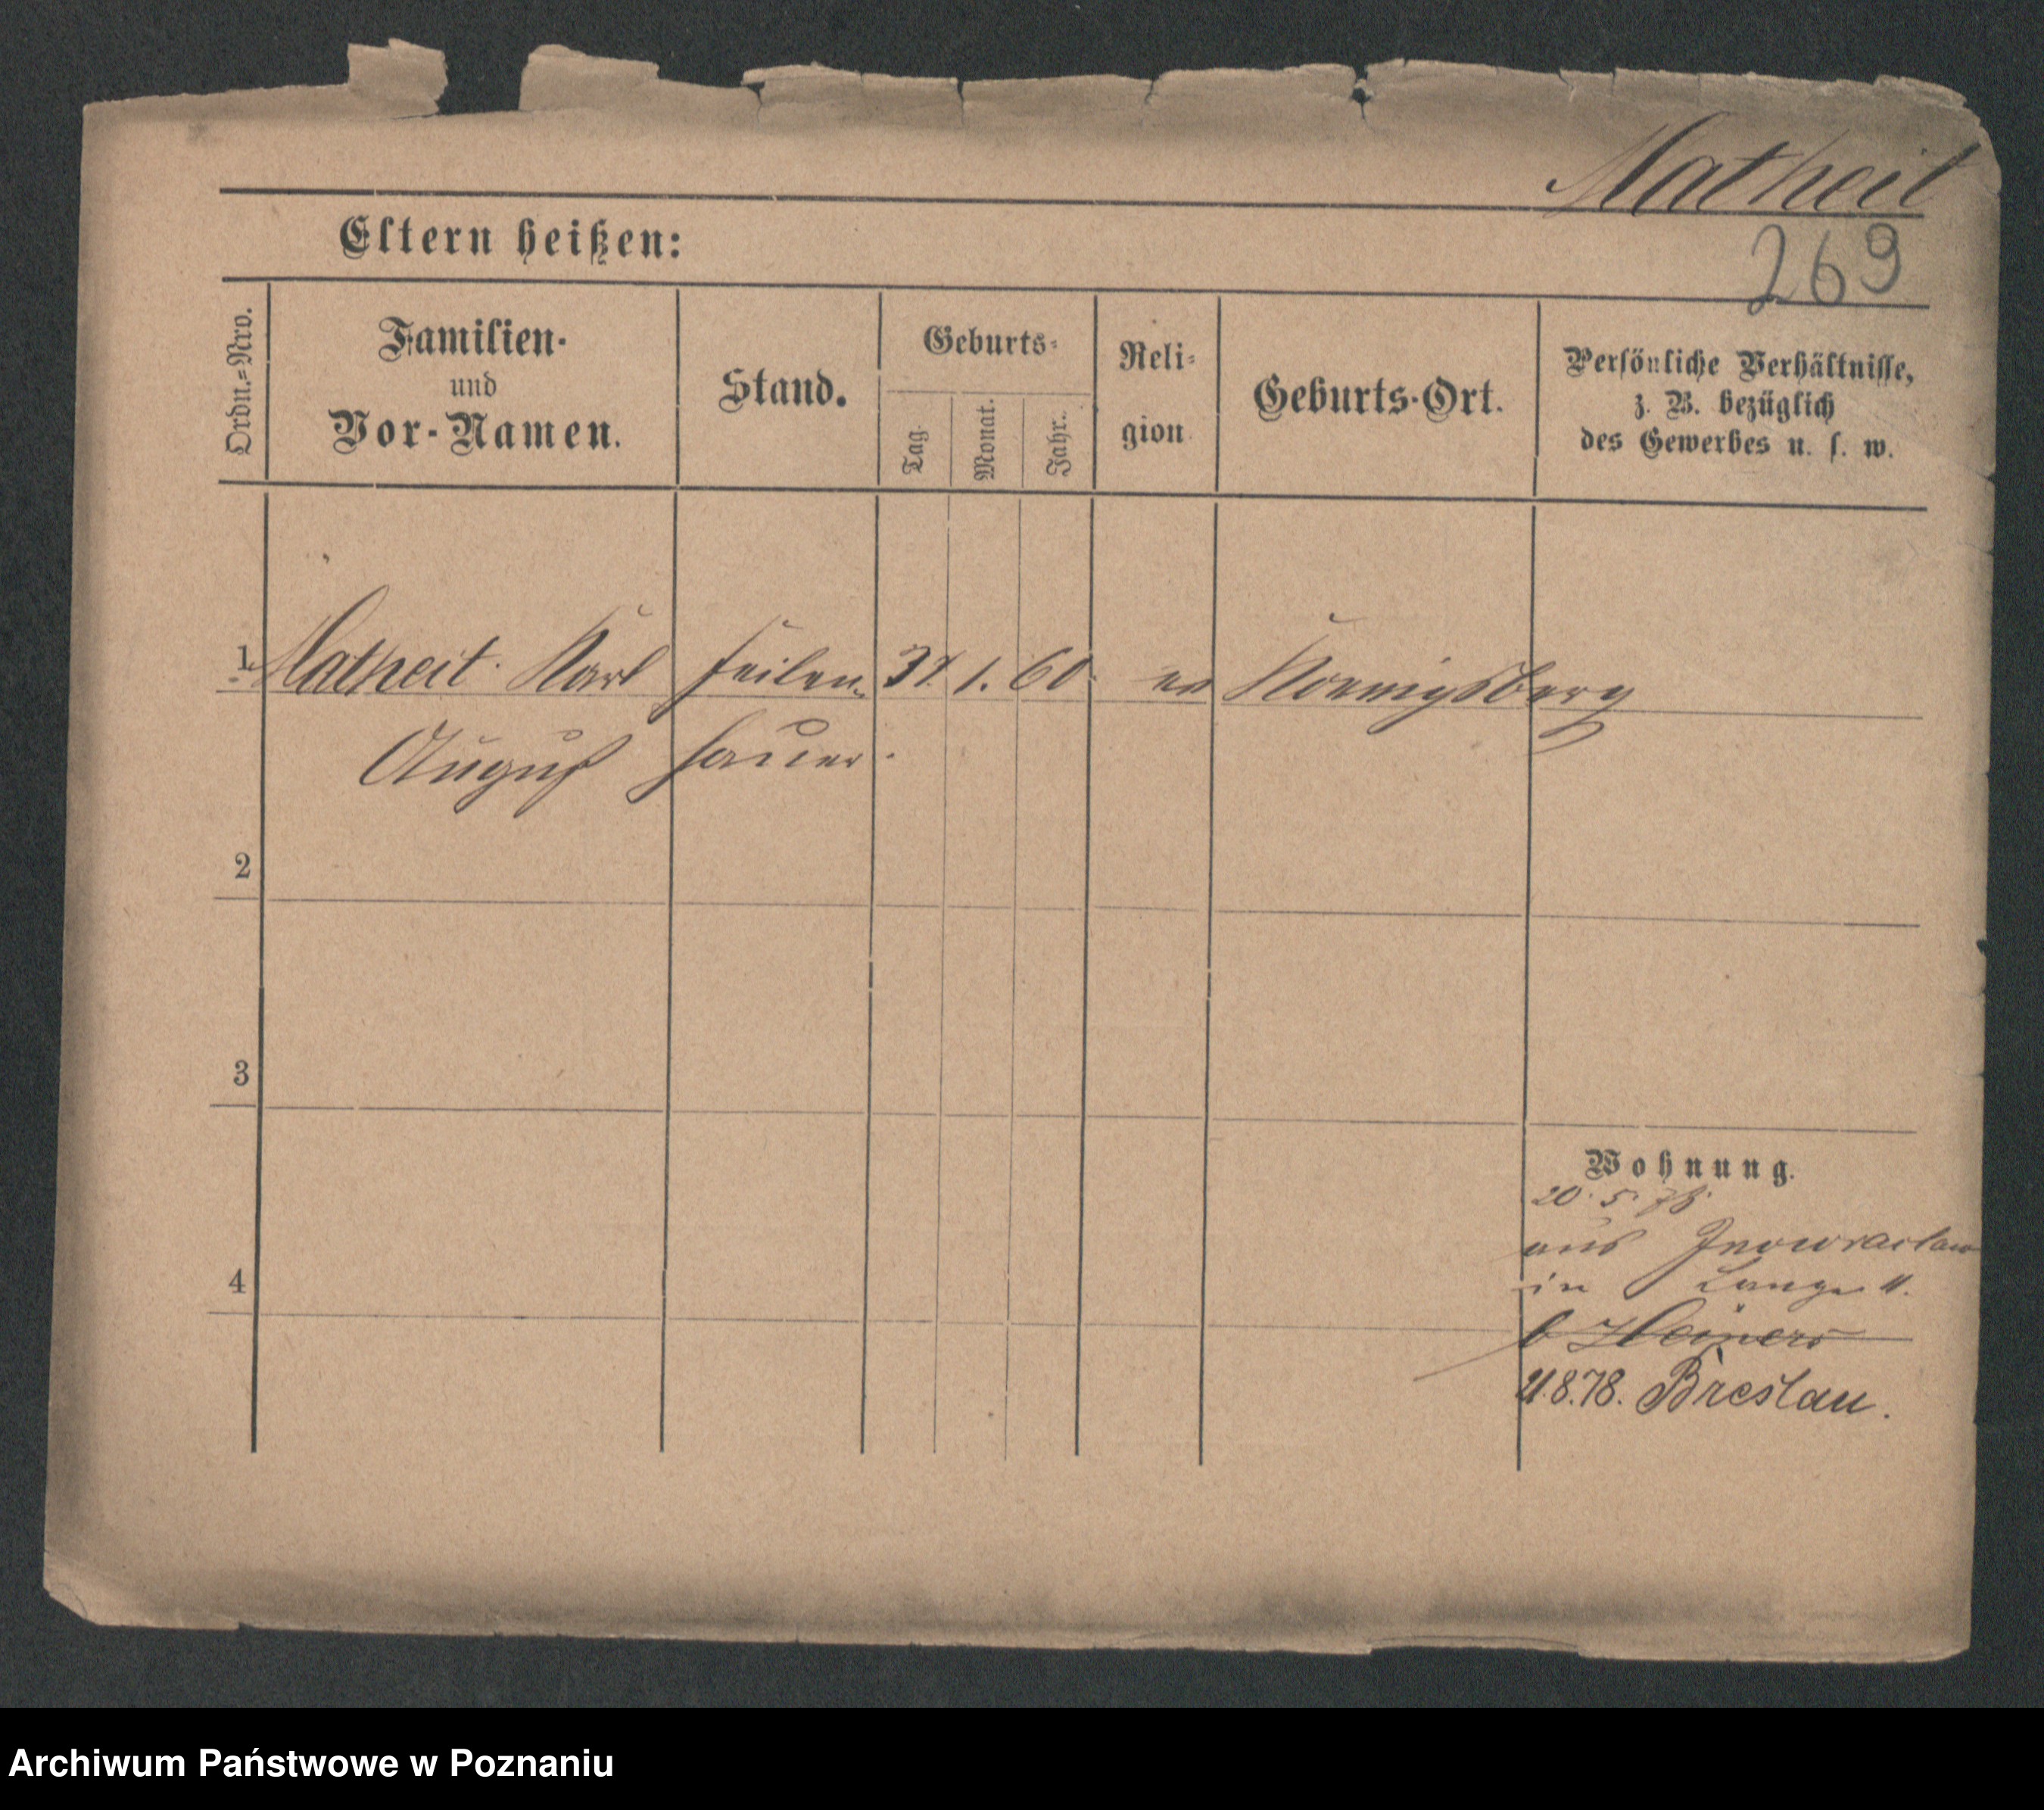 Matheit
269
Eltern heißen:
Ordn.=Nro.
Familien-
und
Vor-Namen.
Stand.
Geburts-
Tag.
Monat.
Jahr.
Reli-
gion
Geburts-Ort.
Persönliche Verhältnisse,
z. B. bezüglich
des Gewerbes u. s. w.
1 Matheit. Karl Feilen- 31. 1. 60. ev Koenigsberg
August hauer.
2
3
4
Wohnung.
20. 5. 78.
aus Inowraclaw
in Lange
b
8.78. Breslau.
Archiwum Państwowe w Poznaniu